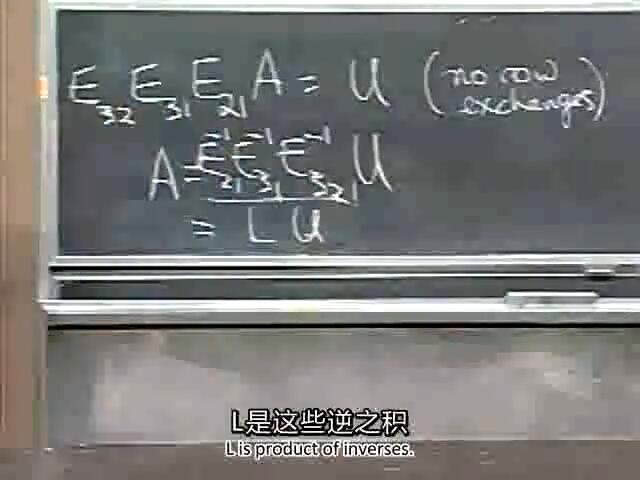 E₃₂ E₃₁ E₂₁ A = U (no row exchanges)
A = E₂₁⁻¹ E₃₁⁻¹ E₃₂⁻¹ U
= L U
L是这些逆之积
L is product of inverses.